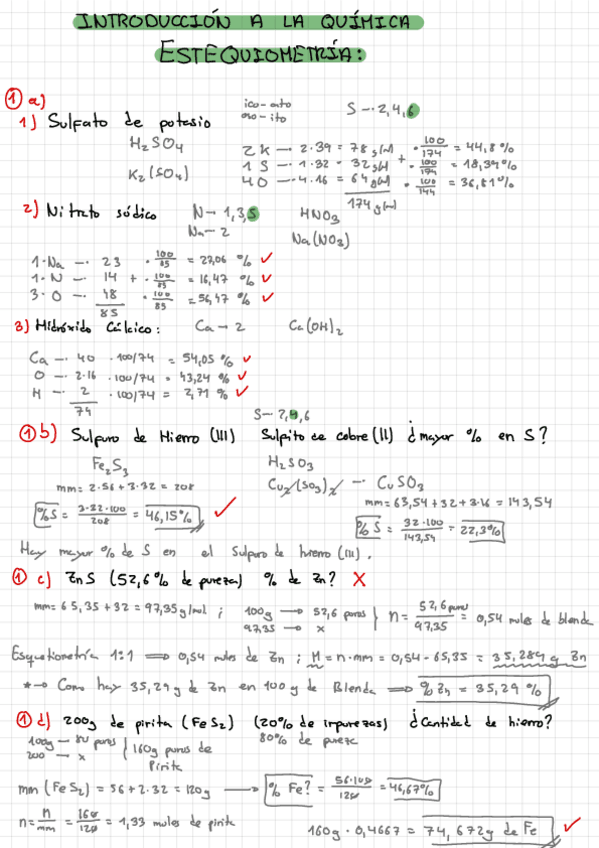 INTRODUCCIÓN A LA QUÍMICA
ESTEQUIOMETRÍA:
① a)
1) Sulfato de potasio
ico-ato
oso-ito
S -· 2,4,6
H₂SO₄
K₂(SO₄)
2 K -· 2·39 = 78 g/ml · 100/174 = 44,8 %
1 S -· 1·32 = 32 g/ml + · 100/174 = 18,39 %
4 O -· 4·16 = 64 g/ml · 100/144 = 36,81 %
174 g/ml
2) Nitrato sódico
N -· 1,3,5
Na -· 2
HNO₃
Na(NO₃)
1·Na -· 23 · 100/85 = 27,06 % ✓
1·N -· 14 + · 100/85 = 16,47 % ✓
3·O -· 48 · 100/85 = 56,47 % ✓
85
3) Hidróxido Cálcico:
Ca -· 2
Ca(OH)₂
Ca -· 40 · 100/74 = 54,05 % ✓
O -· 2·16 · 100/74 = 43,24 % ✓
H -· 2 · 100/74 = 2,71 % ✓
74
S -· 2,4,6
① b) Sulfuro de Hierro (III) Sulfito de cobre (II) ¿mayor % en S?
Fe₂S₃
H₂SO₃
Cu₂(SO₃)₂ -· CuSO₃
mm = 2·56 + 3·32 = 208
mm = 63,54 + 32 + 3·16 = 143,54
%S = 3·32·100/208 = 46,15% ✓
% S = 32·100/143,54 = 22,3%
Hay mayor % de S en el Sulfuro de hierro (III).
① c) ZnS (52,6 % de pureza) % de Zn? X
mm = 65,35 + 32 = 97,35 g/mol ; 100g → 52,6 puros
97,35 → x
n = 52,6 puro/97,35 = 0,54 moles de blenda
Esquetiometría 1:1 ⟹ 0,54 moles de Zn ; M = n·mm = 0,54 · 65,35 = 35,289 g Zn
*→ Como hay 35,29 g de Zn en 100 g de Blenda ⟹ % Zn = 35,29 %
① d) 200g de pirita (FeS₂) (20% de impurezas) ¿Cantidad de hierro?
100g — 80 puros
200 — x
160g puros de
Pirita
80% de pureza
mm (FeS₂) = 56 + 2·32 = 120g → % Fe? = 56·100/120 = 46,67%
n = m/mm = 160/120 = 1,33 moles de pirita
160g · 0,4667 = 74,672g de Fe ✓